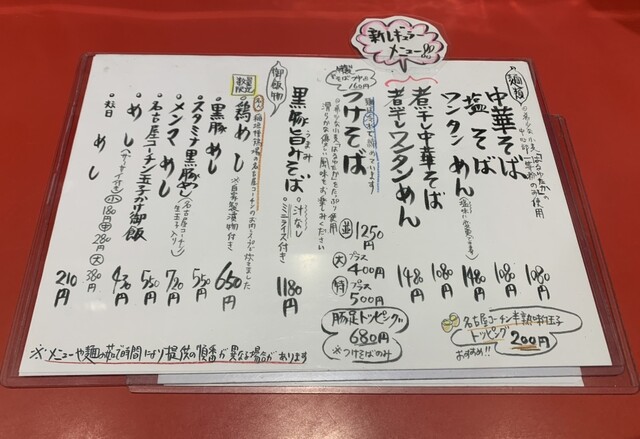 新レギュラー
メニュー
麺類
中華そば
1080円
塩そば
1080円
ワンタンめん
1480円
煮干し中華そば
1080円
煮干しワンタンめん
1480円
つけそば
並 1250円
大 プラス 400円
特 プラス 500円
豚足トッピング
680円
※つけそばのみ
名古屋コーチン半熟味玉子
トッピング
200円
おすすめ!!
黒豚旨みそば
うまみ
汁なし
ミニライス付き
1180円
御飯物
数量限定
鶏めし
※自家製漬物付き
650円
黒豚めし
550円
スタミナ黒豚めし
(名古屋コーチン
生玉子入り)
720円
メンマめし
550円
名古屋コーチン玉子かけ御飯
430円
めし
小 180円 中 280円 大 380円
210円
※メニューや麺の茹で時間により提供の順番が異なる場合があります